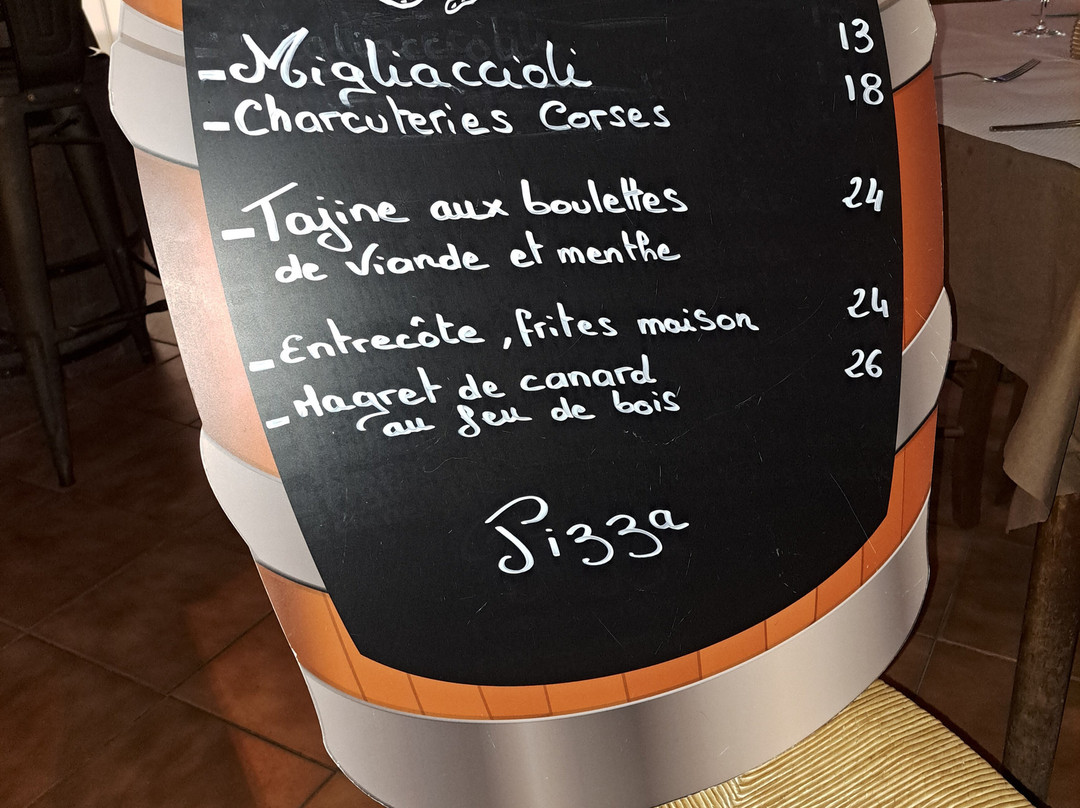 - Migliaccioli 13
- Charcuteries Corses 18
- Tajine aux boulettes 24
de viande et menthe
- Entrecôte, frites maison 24
- Magret de canard 26
au feu de bois
Pizza